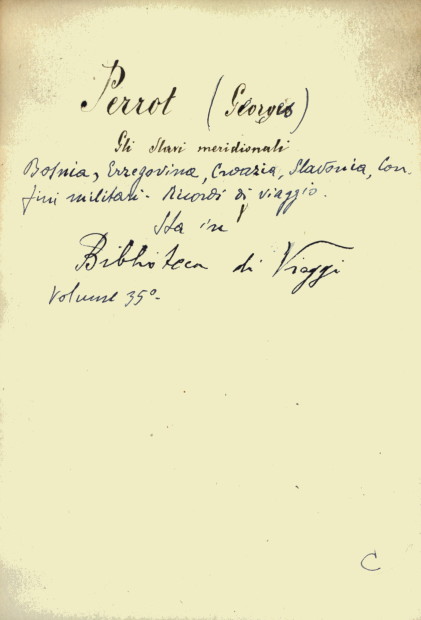 Perrot (Georges)
Gli Slavi meridionali
Bosnia, Erzegovina, Croazia, Slavonia, Con-
fini militari - Ricordi di viaggio.
Sta in
Biblioteca di Viaggi
Volume 35º-
C